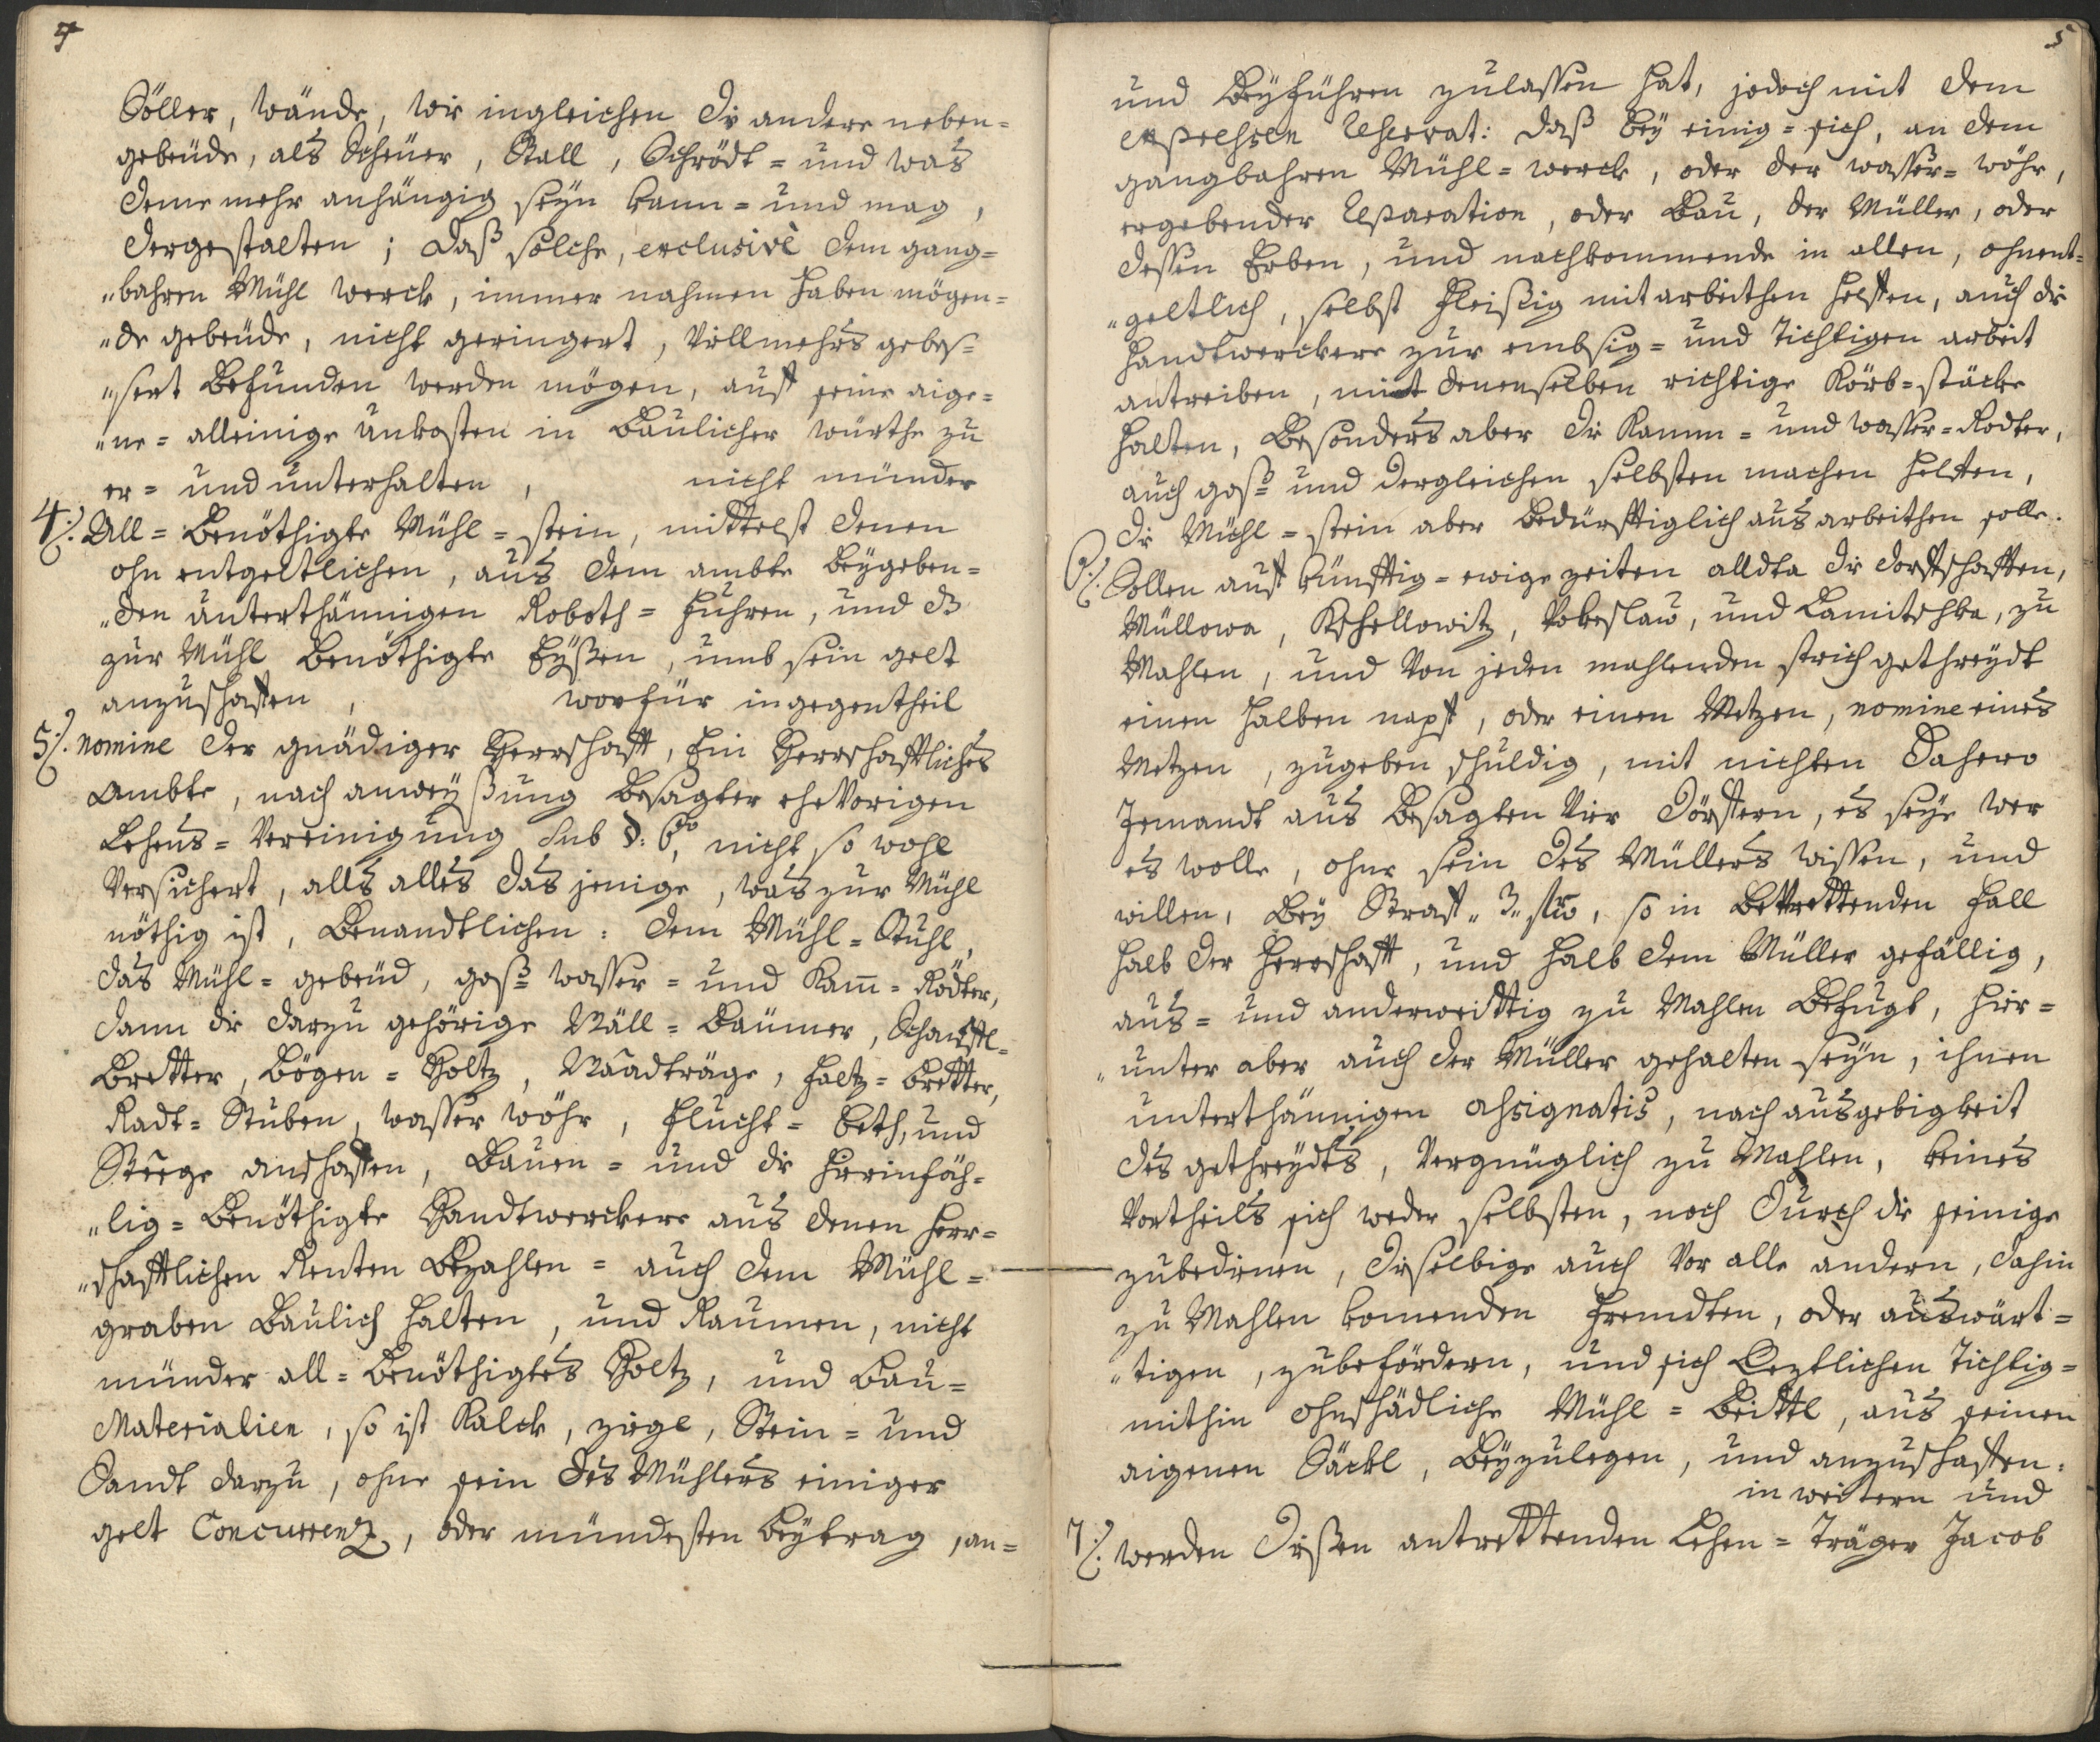 4
Söller, Wände, wie ingleichen die andere neben-
gebeüde, als Scheüer, Stall, Schrödt- und was
deme mehr anhängig seyn kann- und mag,
dergestalten; daß solche, exclusivè dem gang-
„bahren Mühl werck, immer nahmen haben mögen-
„de gebeüde, nicht geringert, Villmehrs gebes-
„sert befunden werden mögen, auff seine aige-
„ne- alleinige unkosten in Baulicher würthe zu
er- und unterhalten, nicht münder
4:/. All- Benöthigte Mühl-stein, mittelst denen
ohn entgeltlichen, aus dem ambte beygeben-
„den unterthännigen Roboth-Fuhren, und dz
zur Mühl benöthigte Eyßen, umb sein gelt
anzuschaffen, worfür ingegentheil
5:/. nomine der gnädiger Herrschafft, Ein Herrschafftliches
Ambte, nach anweyßung besagter ehevorigen
Lehens-Vereinigung sub §: 6to, nicht so wohl
Versichert, alls alles das jenige, was zur Mühl
nöthig ist, Benandtlichen: dem Mühl-Stuhl,
das Mühl-gebeüd, goß- wasser- und Kam̅-Rödter,
dann die darzu gehörige Wäll-Baümer, Schauffl-
Bretter, Bögen-Holtz, Waadträge, Faltz-Bretter,
Radt-Stuben, wasser wöhr, Flucht-beth, und
Steege anschaffen, Bauen- und die hierinfäh-
„lig- benöthigte Handtwerckere aus denen Herr-
„schafftlichen Renten Bezahlen- auch dem Mühl-
graben Baulich halten, und Raumen, nicht
münder all-benöthigtes Holtz, und Bau-
Materialien, so ist Kalck, ziegl, Stein- und
Sandt darzu, ohne sein des Mühlers einiger
gelt Concurrenz, oder mündesten Beytrag, an-
5
und Beyführen zulassen hat, jedoch mit dem
expressen Reservat: daß bey einig-sich, an dem
gangbahren Mühl-werck, oder der wasser-wöhr,
ergebender Reparation, oder Bau, der Müller, oder
dessen Erben, und nachkommende in allen, ohnent-
„geltlich, selbst fleißig mitarbeithen helffen, auch die
Handtwerckere zur embsig- und tichtigen arbeit
antreiben, mit denenselben richtige Körb-stäcke
halten, Besonders aber die Kamm- und wasser-Rodter,
auch goß- und dergleichen selbsten machen helffen,
die Mühl-stein aber bedürfftiglich ausarbeithen solle.
6:/. Sollen auff künfftig-ewige zeiten alldta die dorffschafften,
Müllowa, Kschellowitz, Wokeslau, und Lamitschka, zu
Mahlen, und Von jeden mahlenden strich gethreydt
einen halben napff, oder einen Metzen, nomine eines
Metzen, zugeben schuldig, mit nichten dahero
Jemandt aus besagten Vier Dörffern, es seye wer
es wolle, ohne sein des Müllers wissen, und
willen, bey Straff „3„ , so in betrettenden Fall
halb der Herrschafft, und halb dem Müller gefällig,
aus- und anderweittig zu Mahlen befugt, hier-
„unter aber auch der Müller gehalten seyn, ihnen
unterthännigen assignatis, nach ausgebigkeit
des gethreydts, Vergnüglich zu Mahlen, keines
Vortheils sich weder selbsten, noch durch die seinige
zubedienen, dieselbige auch Vor alle andern, dahin
zu Mahlen komenden Fremdten, oder auswärt-
„tigen, zubefördern, und sich Letztlichen tichtig-
mithin ohnschädliche Mühl-Beittl, aus seinen
aigenen Säckl, Beyzulegen, und anzuschaffen.
in weitern und
7:/. werden dießen antrettenden Lehen-Träger Jacob